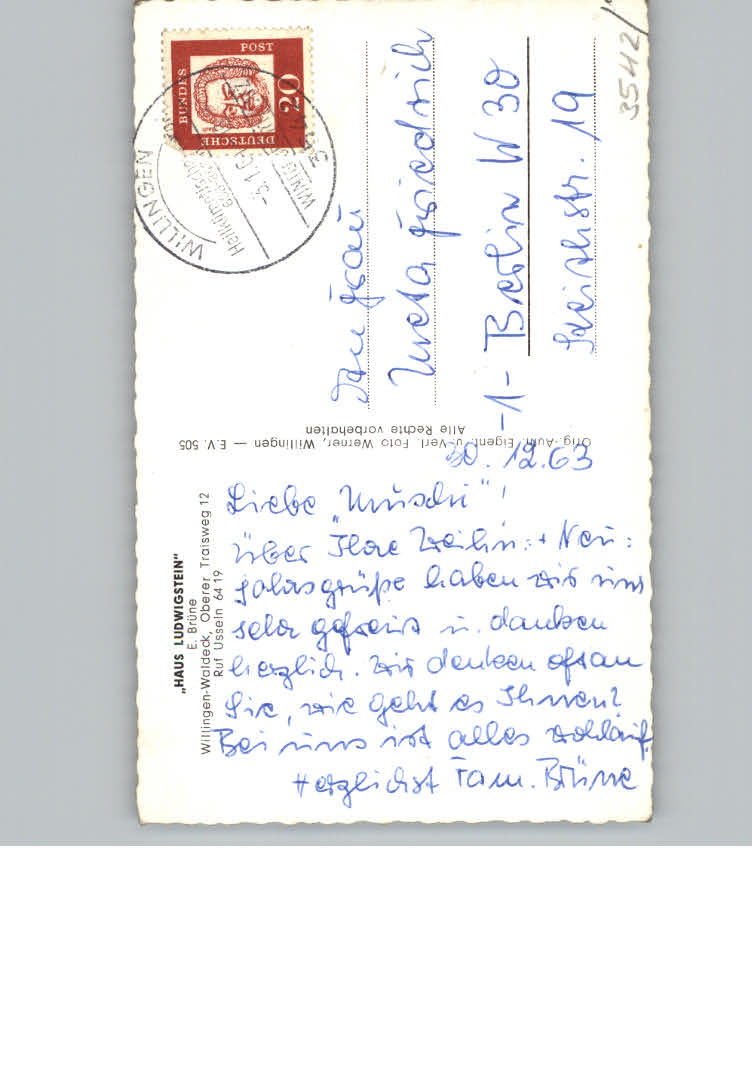 „HAUS LUDWIGSTEIN“
E. Brüne
Willingen-Waldeck, Oberer Traisweg 12
Ruf Usseln 64 19
30. 12. 63
Liebe „Muschi“!
über Ihre Weihn: + Neu:
jahrsgrüße haben wir uns
sehr gefreut u. danken
herzlich. Wir denken oft an
Sie, wie geht es Ihnen?
Bei uns ist alles wohlauf.
Herzlichst Fam. Brüne
Orig.-Aufn. Eigent. u. Verl. Foto Werner, Willingen — E.V. 505
Alle Rechte vorbehalten
DEUTSCHE
BUNDES
POST
20
WILLINGEN
Frau
Meta Friedrich
-1- Berlin W 30
19
3542/